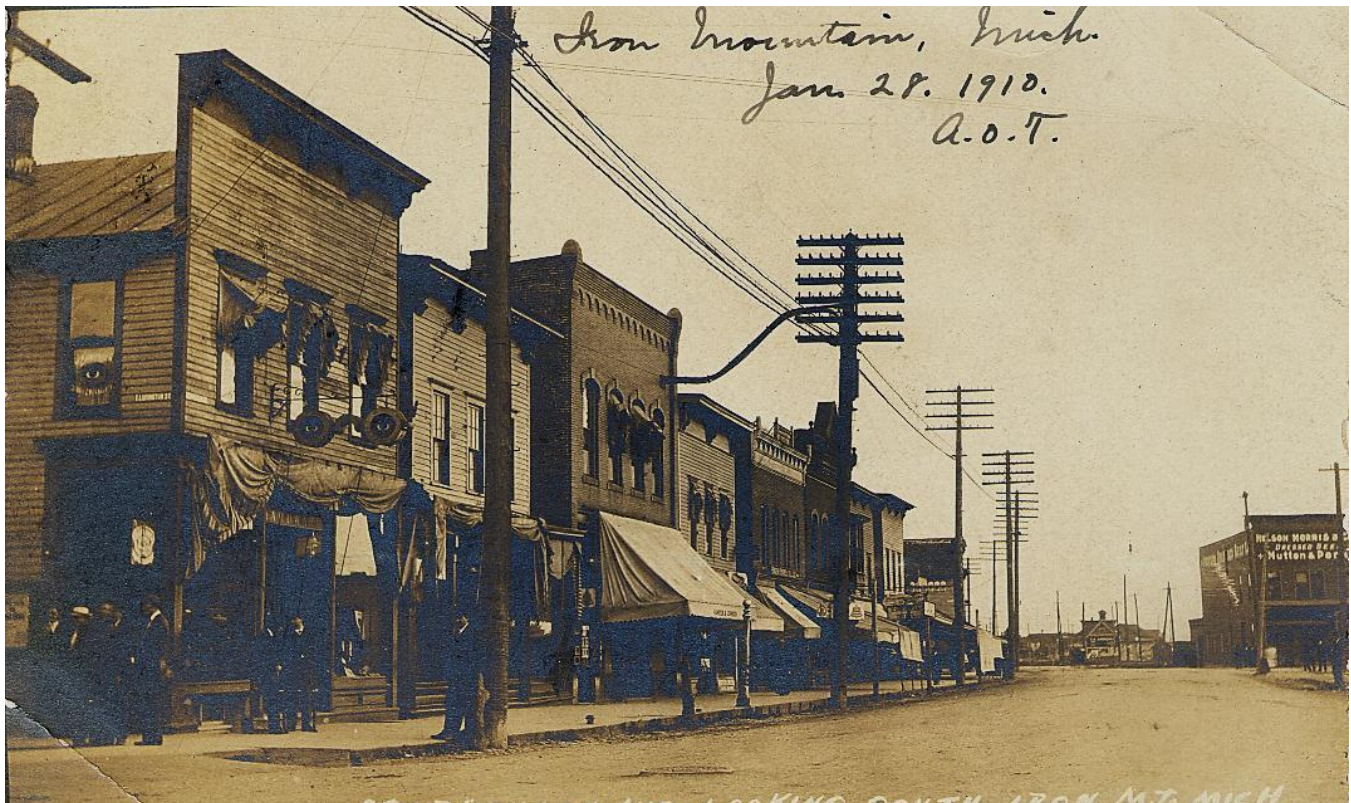 Iron Mountain, Mich.
Jan. 28. 1910.
A.O.T.
NELSON MORRIS &
DRESSED BEE
Mutton & Por
LOOKING SOUTH, IRON MT. MICH